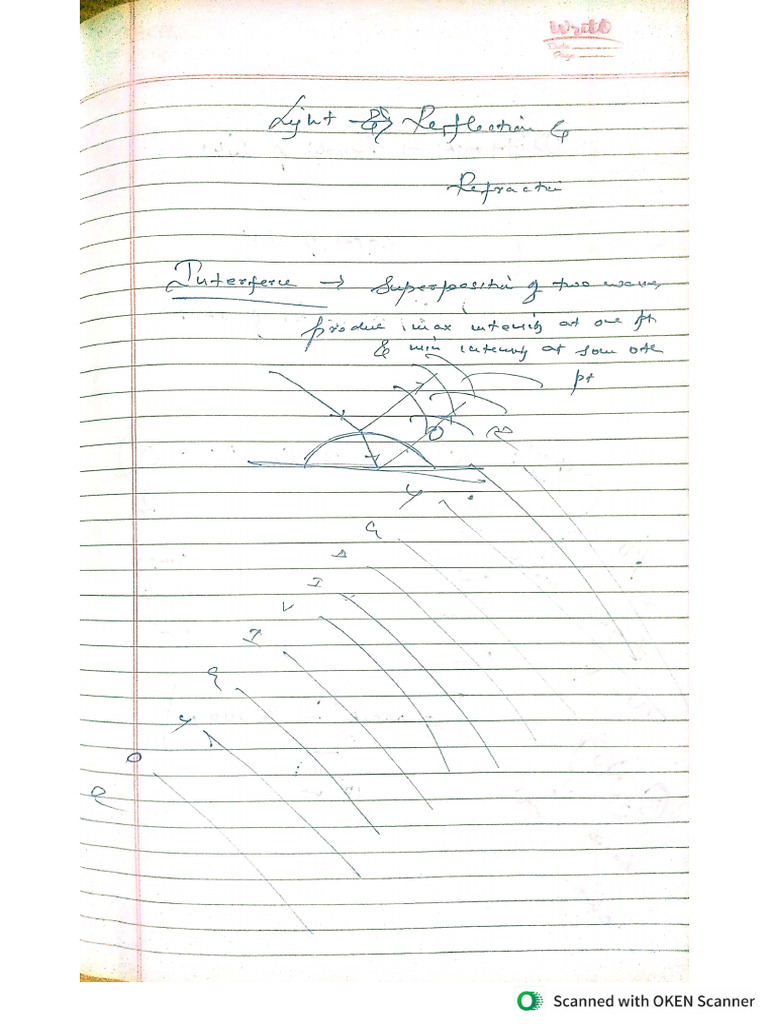 Writo
Date
Page
Light → Reflection &
Refraction
Interference → Superposition of two waves
produce max intensity at one pt
& min intensity at some other
pt
O R
Y
G
B
I
V
I
G
Y
O
R
Scanned with OKEN Scanner